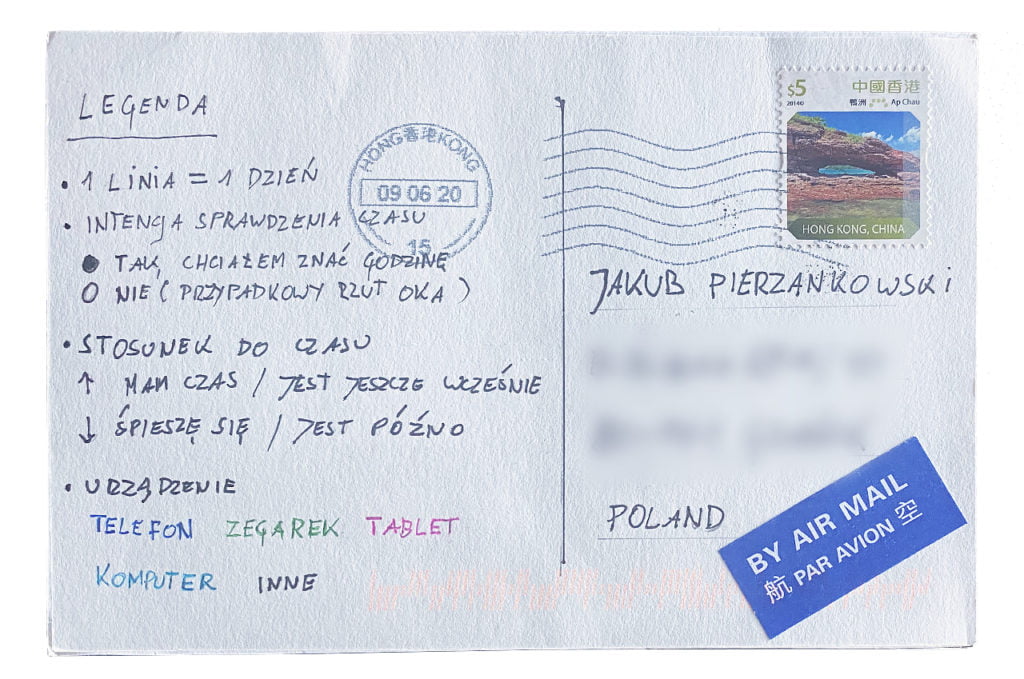 LEGENDA
• 1 LINIA = 1 DZIEŃ
• INTENCJA SPRAWDZENIA CZASU
● TAK, CHCIAŁEM ZNAĆ GODZINĘ
O NIE (PRZYPADKOWY RZUT OKA)
• STOSUNEK DO CZASU
↑ MAM CZAS / JEST JESZCZE WCZEŚNIE
↓ ŚPIESZĘ SIĘ / JEST PÓŹNO
• URZĄDZENIE
TELEFON ZEGAREK TABLET
KOMPUTER INNE
HONG香港KONG
09 06 20
15
$5 中國香港
2014© 鴨洲 Ap Chau
HONG KONG, CHINA
JAKUB PIERZANKOWSKI
POLAND
BY AIR MAIL
航 PAR AVION 空